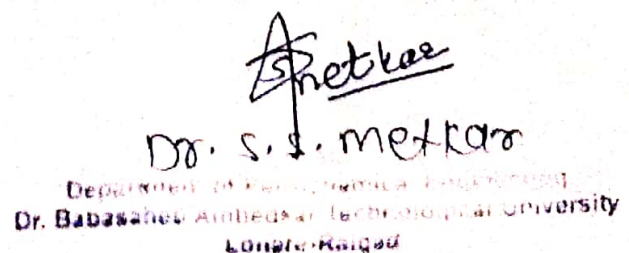 Smetkar
Dr. S. S. metkar
Department of Petrochemical Engineering
Dr. Babasaheb Ambedkar Technological University
Lonere-Raigad